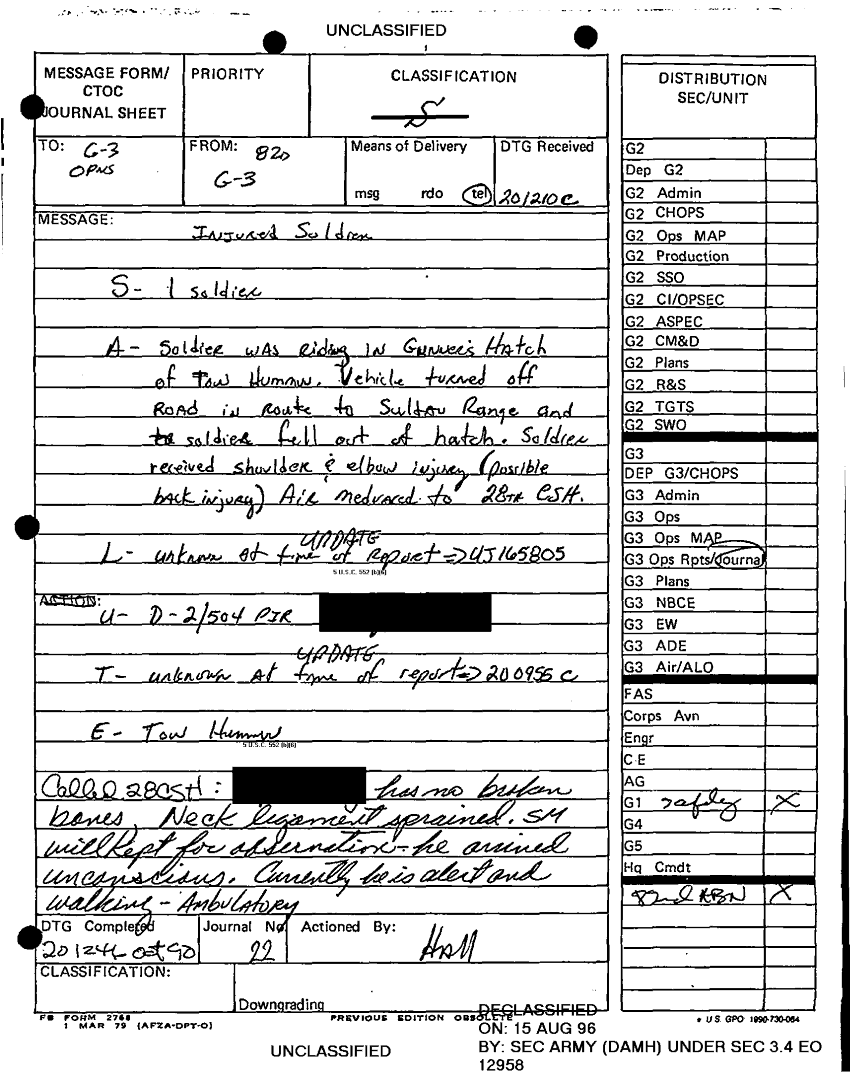 UNCLASSIFIED
MESSAGE FORM/
CTOC
JOURNAL SHEET
PRIORITY
CLASSIFICATION
S
TO: G-3
OPNS
FROM: 82D
G-3
Means of Delivery
msg rdo tel
DTG Received
201210C
MESSAGE:
Injured Soldier
S- 1 soldier
A- Soldier was riding in Gunner's Hatch
of Tow Hummv. Vehicle turned off
road in route to Sultan Range and
soldier fell out of hatch. Soldier
received shoulder & elbow injury (possible
back injury) Air medvaced to 28th CSH.
UPDATE
L- unknown at time of report => UJ165805
5 U.S.C. 552 (b)(6)
ACTION:
U- D-2/504 PIR
UPDATE
T- unknown at time of report => 200955 C
E- Tow Hummv
5 U.S.C. 552 (b)(6)
Called 28CSH: has no broken
bones, Neck ligament sprained. SM
will kept for observation - he arrived
unconscious. Currently he is alert and
walking - Ambulatory
DTG Completed
Oct 90
Journal No
22
Actioned By:
Hall
CLASSIFICATION:
Downgrading
FB FORM 2768
1 MAR 79 (AFZA-DPT-O)
PREVIOUS EDITION OBSOLETE
DISTRIBUTION
SEC/UNIT
G2
Dep G2
G2 Admin
G2 CHOPS
G2 Ops MAP
G2 Production
G2 SSO
G2 CI/OPSEC
G2 ASPEC
G2 CM&D
G2 Plans
G2 R&S
G2 TGTS
G2 SWO
G3
DEP G3/CHOPS
G3 Admin
G3 Ops
G3 Ops MAP
G3 Ops Rpts/Journal
G3 Plans
G3 NBCE
G3 EW
G3 ADE
G3 Air/ALO
FAS
Corps Avn
Engr
C-E
AG
G1 safety X
G4
G5
Hq Cmdt
82nd ABN X
U.S. GPO 1990-730-064
UNCLASSIFIED
DECLASSIFIED
ON: 15 AUG 96
BY: SEC ARMY (DAMH) UNDER SEC 3.4 EO
12958